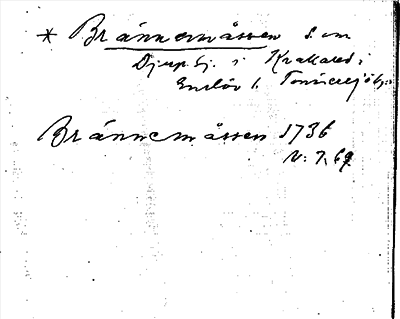 * Brännemåssen s om
Djup bj. i Krakared i
Enslöv s. Tönnersjö h:d
Brännemåssen 1736
v: 7, 69